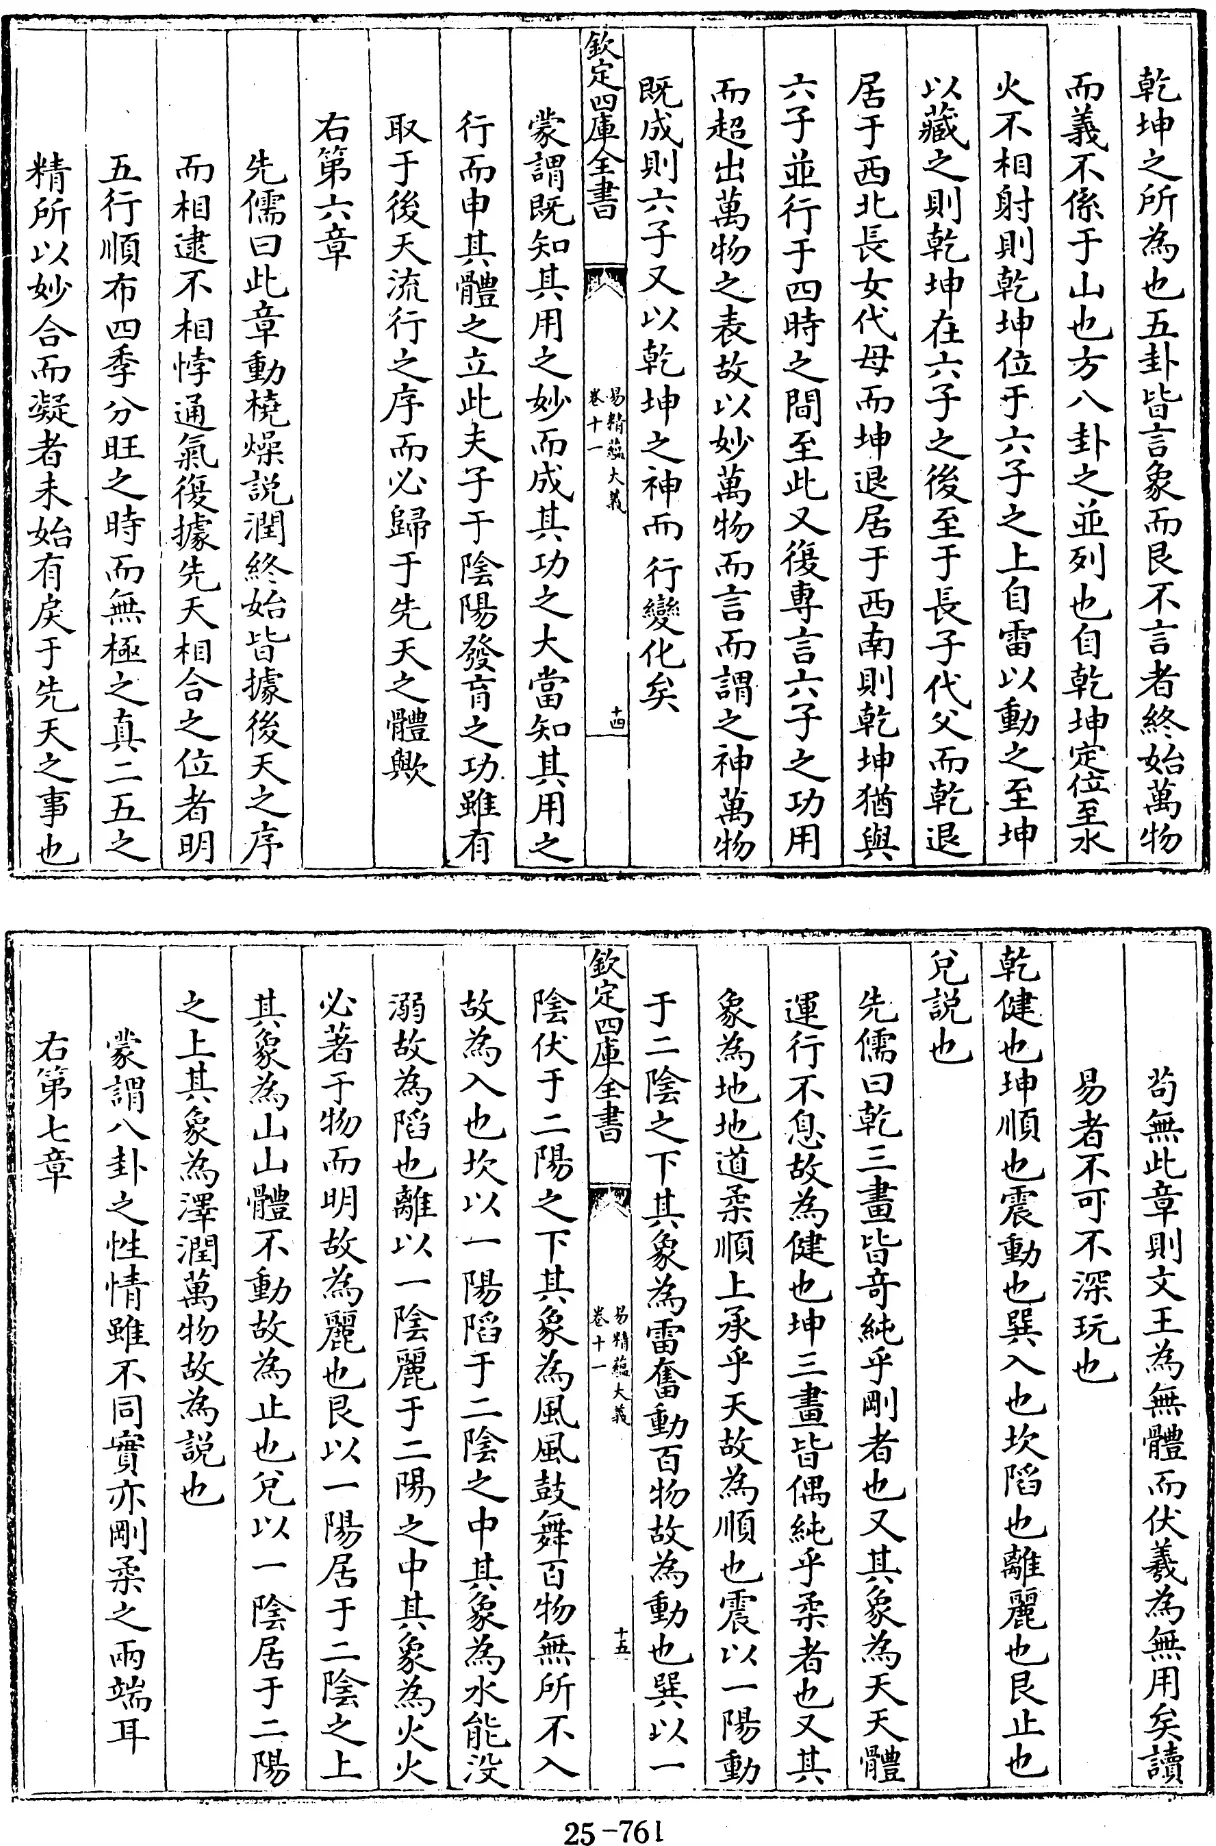 乾坤之所為也五卦皆言象而艮不言者終始萬物
而義不係于山也方八卦之並列也自乾坤定位至水
火不相射則乾坤位于六子之上自雷以動之至坤
以藏之則乾坤在六子之後至于長子代父而乾退
居于西北長女代母而坤退居于西南則乾坤猶與
六子並行于四時之間至此又復專言六子之功用
而超出萬物之表故以妙萬物而言而謂之神萬物
既成則六子又以乾坤之神而行變化矣
欽定四庫全書
易精蘊大義
卷十一
十四
蒙謂既知其用之妙而成其功之大當知其用之
行而申其體之立此夫子于陰陽發育之功雖有
取于後天流行之序而必歸于先天之體歟
右第六章
先儒曰此章動橈燥説潤終始皆據後天之序
而相逮不相悖通氣復據先天相合之位者明
五行順布四季分旺之時而無極之真二五之
精所以妙合而凝者未始有戾于先天之事也
苟無此章則文王為無體而伏羲為無用矣讀
易者不可不深玩也
乾健也坤順也震動也巽入也坎陷也離麗也艮止也
兌説也
先儒曰乾三畫皆竒純乎剛者也又其象為天天體
運行不息故為健也坤三畫皆偶純乎柔者也又其
象為地地道柔順上承乎天故為順也震以一陽動
于二陰之下其象為雷奮動百物故為動也巽以一
欽定四庫全書
易精蘊大義
卷十一
十五
陰伏于二陽之下其象為風風鼓舞百物無所不入
故為入也坎以一陽陷于二陰之中其象為水能没
溺故為陷也離以一陰麗于二陽之中其象為火火
必著于物而明故為麗也艮以一陽居于二陰之上
其象為山山體不動故為止也兌以一陰居于二陽
之上其象為澤潤萬物故為説也
蒙謂八卦之性情雖不同實亦剛柔之兩端耳
右第七章
25-761